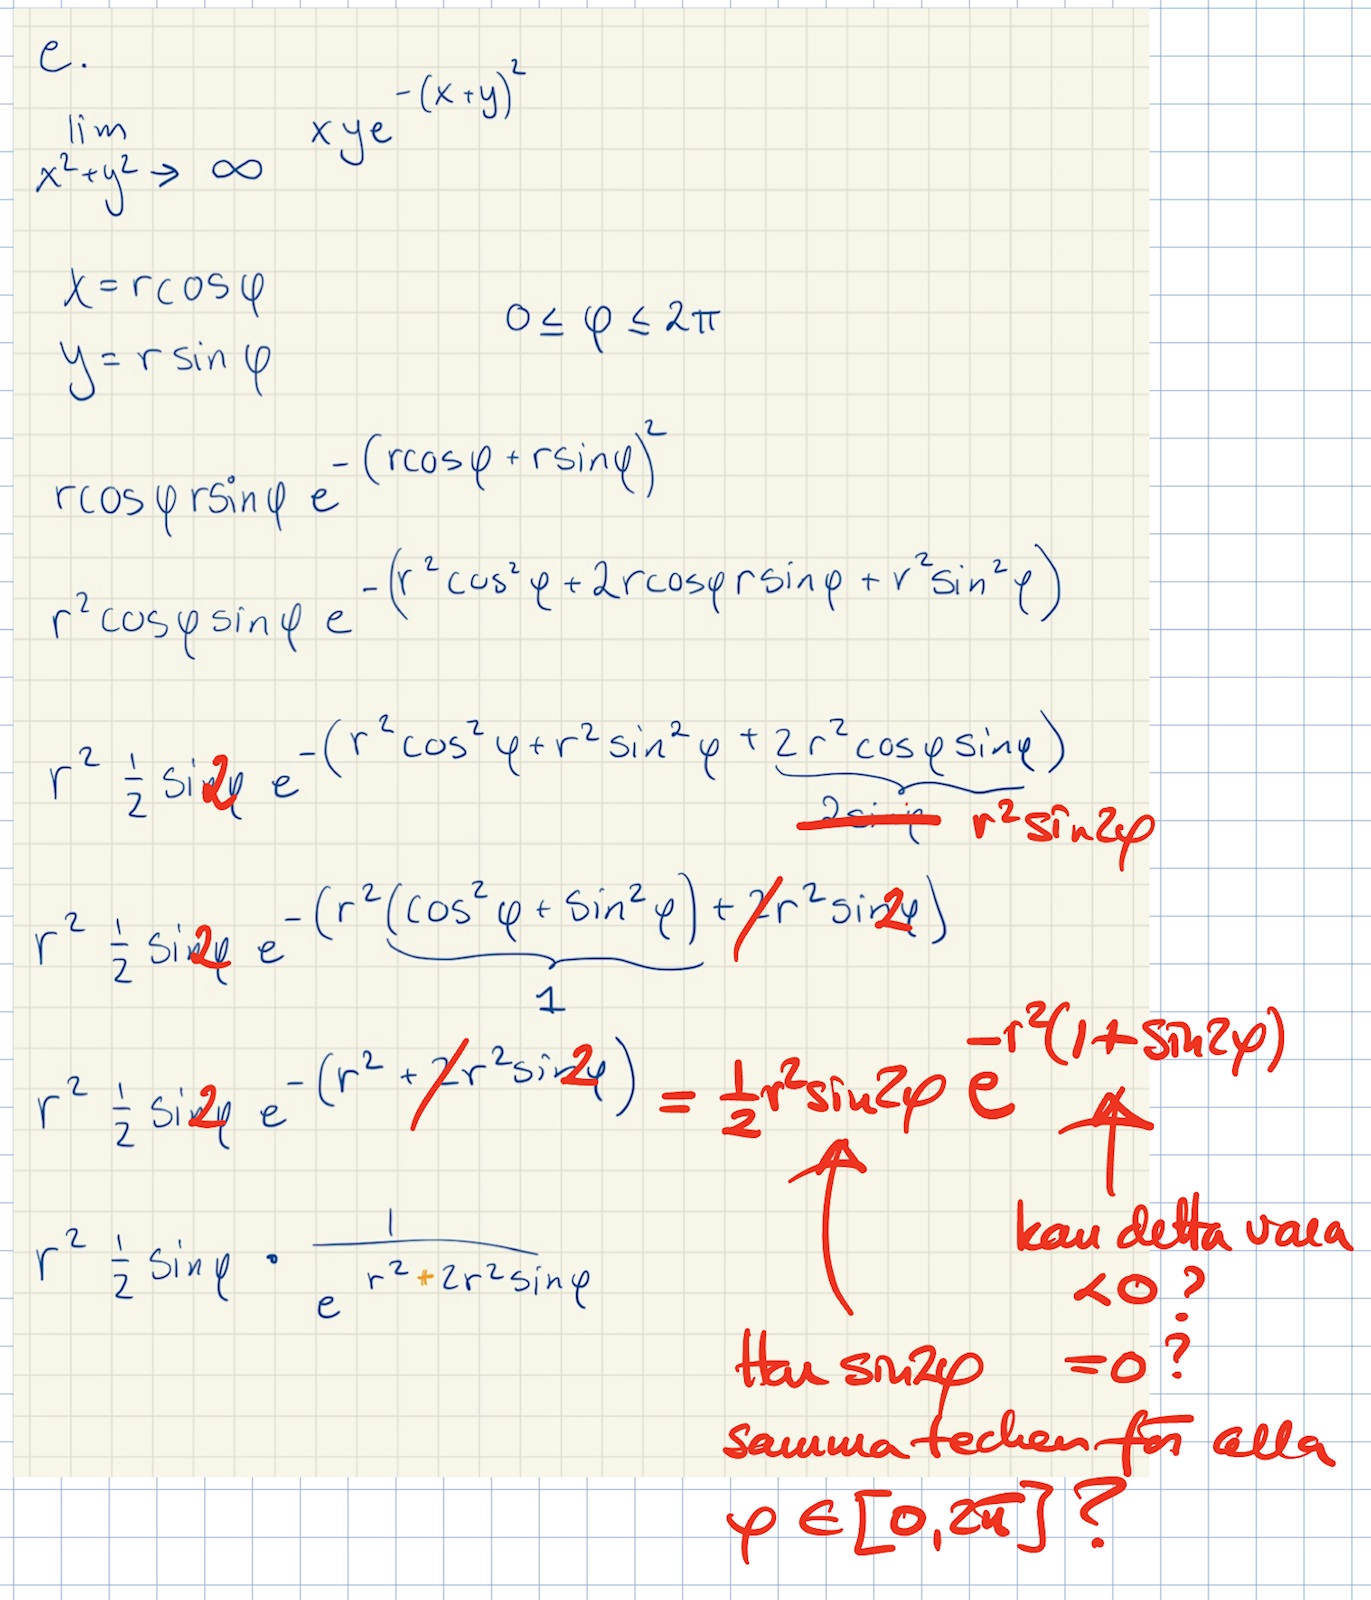 e.
lim x²+y² → ∞ xye^(-(x+y)²)
x = rcosφ
0 ≤ φ ≤ 2π
y = r sin φ
rcosφ rsinφ e^(-(rcosφ + rsinφ)²)
r² cosφ sinφ e^(-(r²cos²φ + 2rcosφ rsinφ + r²sin²φ))
r² 1/2 sin2φ e^(-(r²cos²φ + r²sin²φ + 2r²cosφ sinφ))
r² sin2φ
r² 1/2 sin2φ e^(-(r²(cos²φ + sin²φ) + 2r² sin2φ))
1
r² 1/2 sin2φ e^(-(r² + 2r² sin2φ)) = 1/2 r² sin2φ e^(-r²(1+sin2φ))
r² 1/2 sinφ · 1/e^(r²+2r²sinφ)
kan detta vara
<0?
=0?
Har sin2φ
samma tecken för alla
φ ∈ [0,2π]?